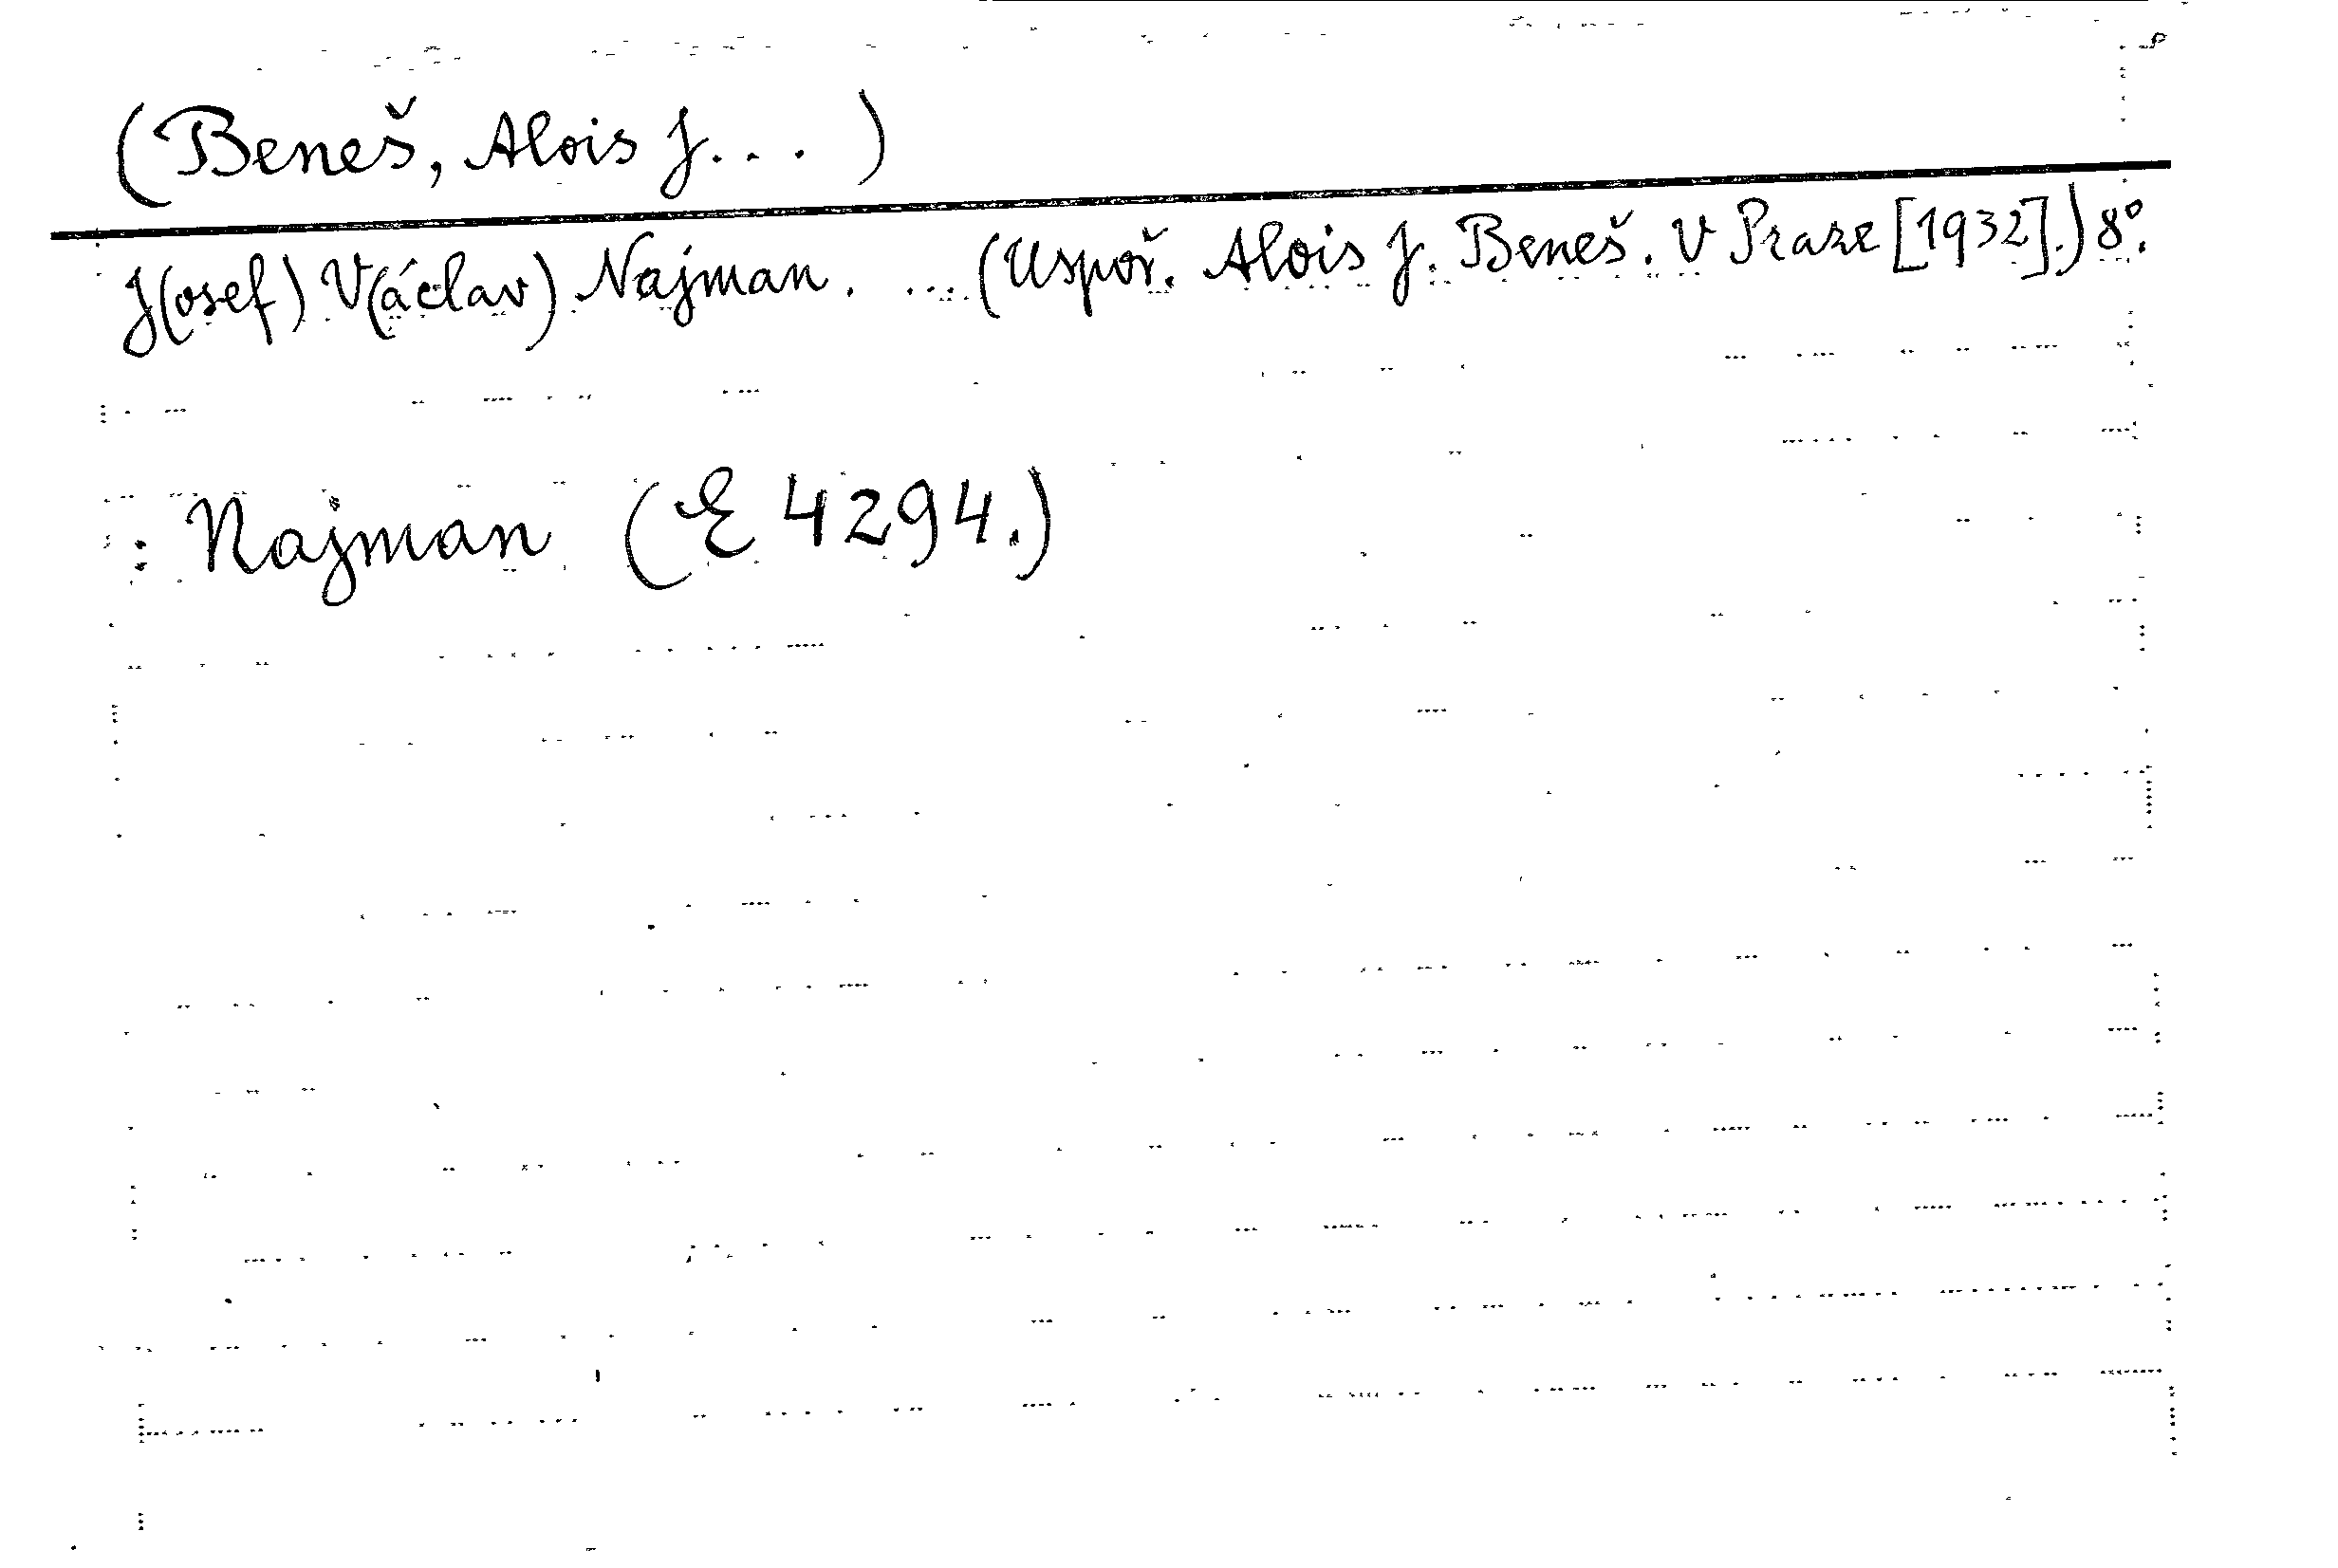 (Beneš, Alois J... )
J(osef) V(áclav) Najman. ...(Uspoř. Alois J. Beneš. V Praze [1932].) 8°.
: Najman (E 4294.)